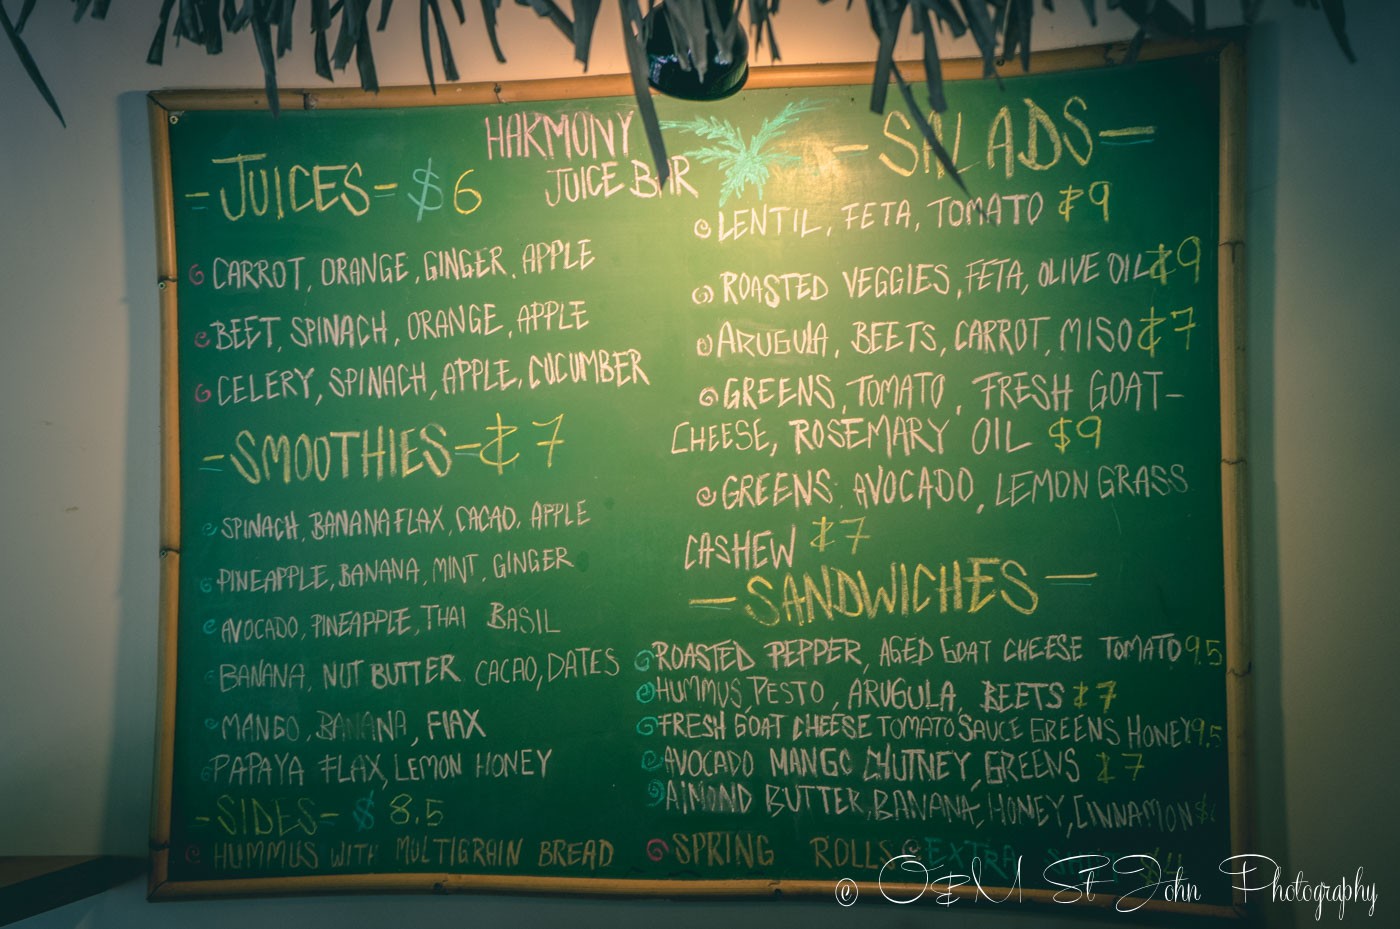 HARMONY
JUICE BAR
-JUICES- $6
CARROT, ORANGE, GINGER, APPLE
BEET, SPINACH, ORANGE, APPLE
CELERY, SPINACH, APPLE, CUCUMBER
-SMOOTHIES- $7
SPINACH, BANANA FLAX, CACAO, APPLE
PINEAPPLE, BANANA, MINT, GINGER
AVOCADO, PINEAPPLE, THAI BASIL
BANANA, NUT BUTTER CACAO, DATES
MANGO, BANANA, FLAX
PAPAYA FLAX, LEMON HONEY
-SIDES- $ 8.5
HUMMUS WITH MULTIGRAIN BREAD
-SALADS-
LENTIL, FETA, TOMATO $9
ROASTED VEGGIES, FETA, OLIVE OIL $9
ARUGULA, BEETS, CARROT, MISO $7
GREENS, TOMATO, FRESH GOAT-
CHEESE, ROSEMARY OIL $9
GREENS, AVOCADO, LEMON GRASS
CASHEW $7
-SANDWICHES-
ROASTED PEPPER, AGED GOAT CHEESE TOMATO 9.5
HUMMUS, PESTO, ARUGULA, BEETS $7
FRESH GOAT CHEESE TOMATO SAUCE GREENS HONEY 9.5
AVOCADO MANGO CHUTNEY, GREENS $7
ALMOND BUTTER, BANANA, HONEY, CINNAMON
SPRING ROLLS EXTRA
© O&M St John Photography